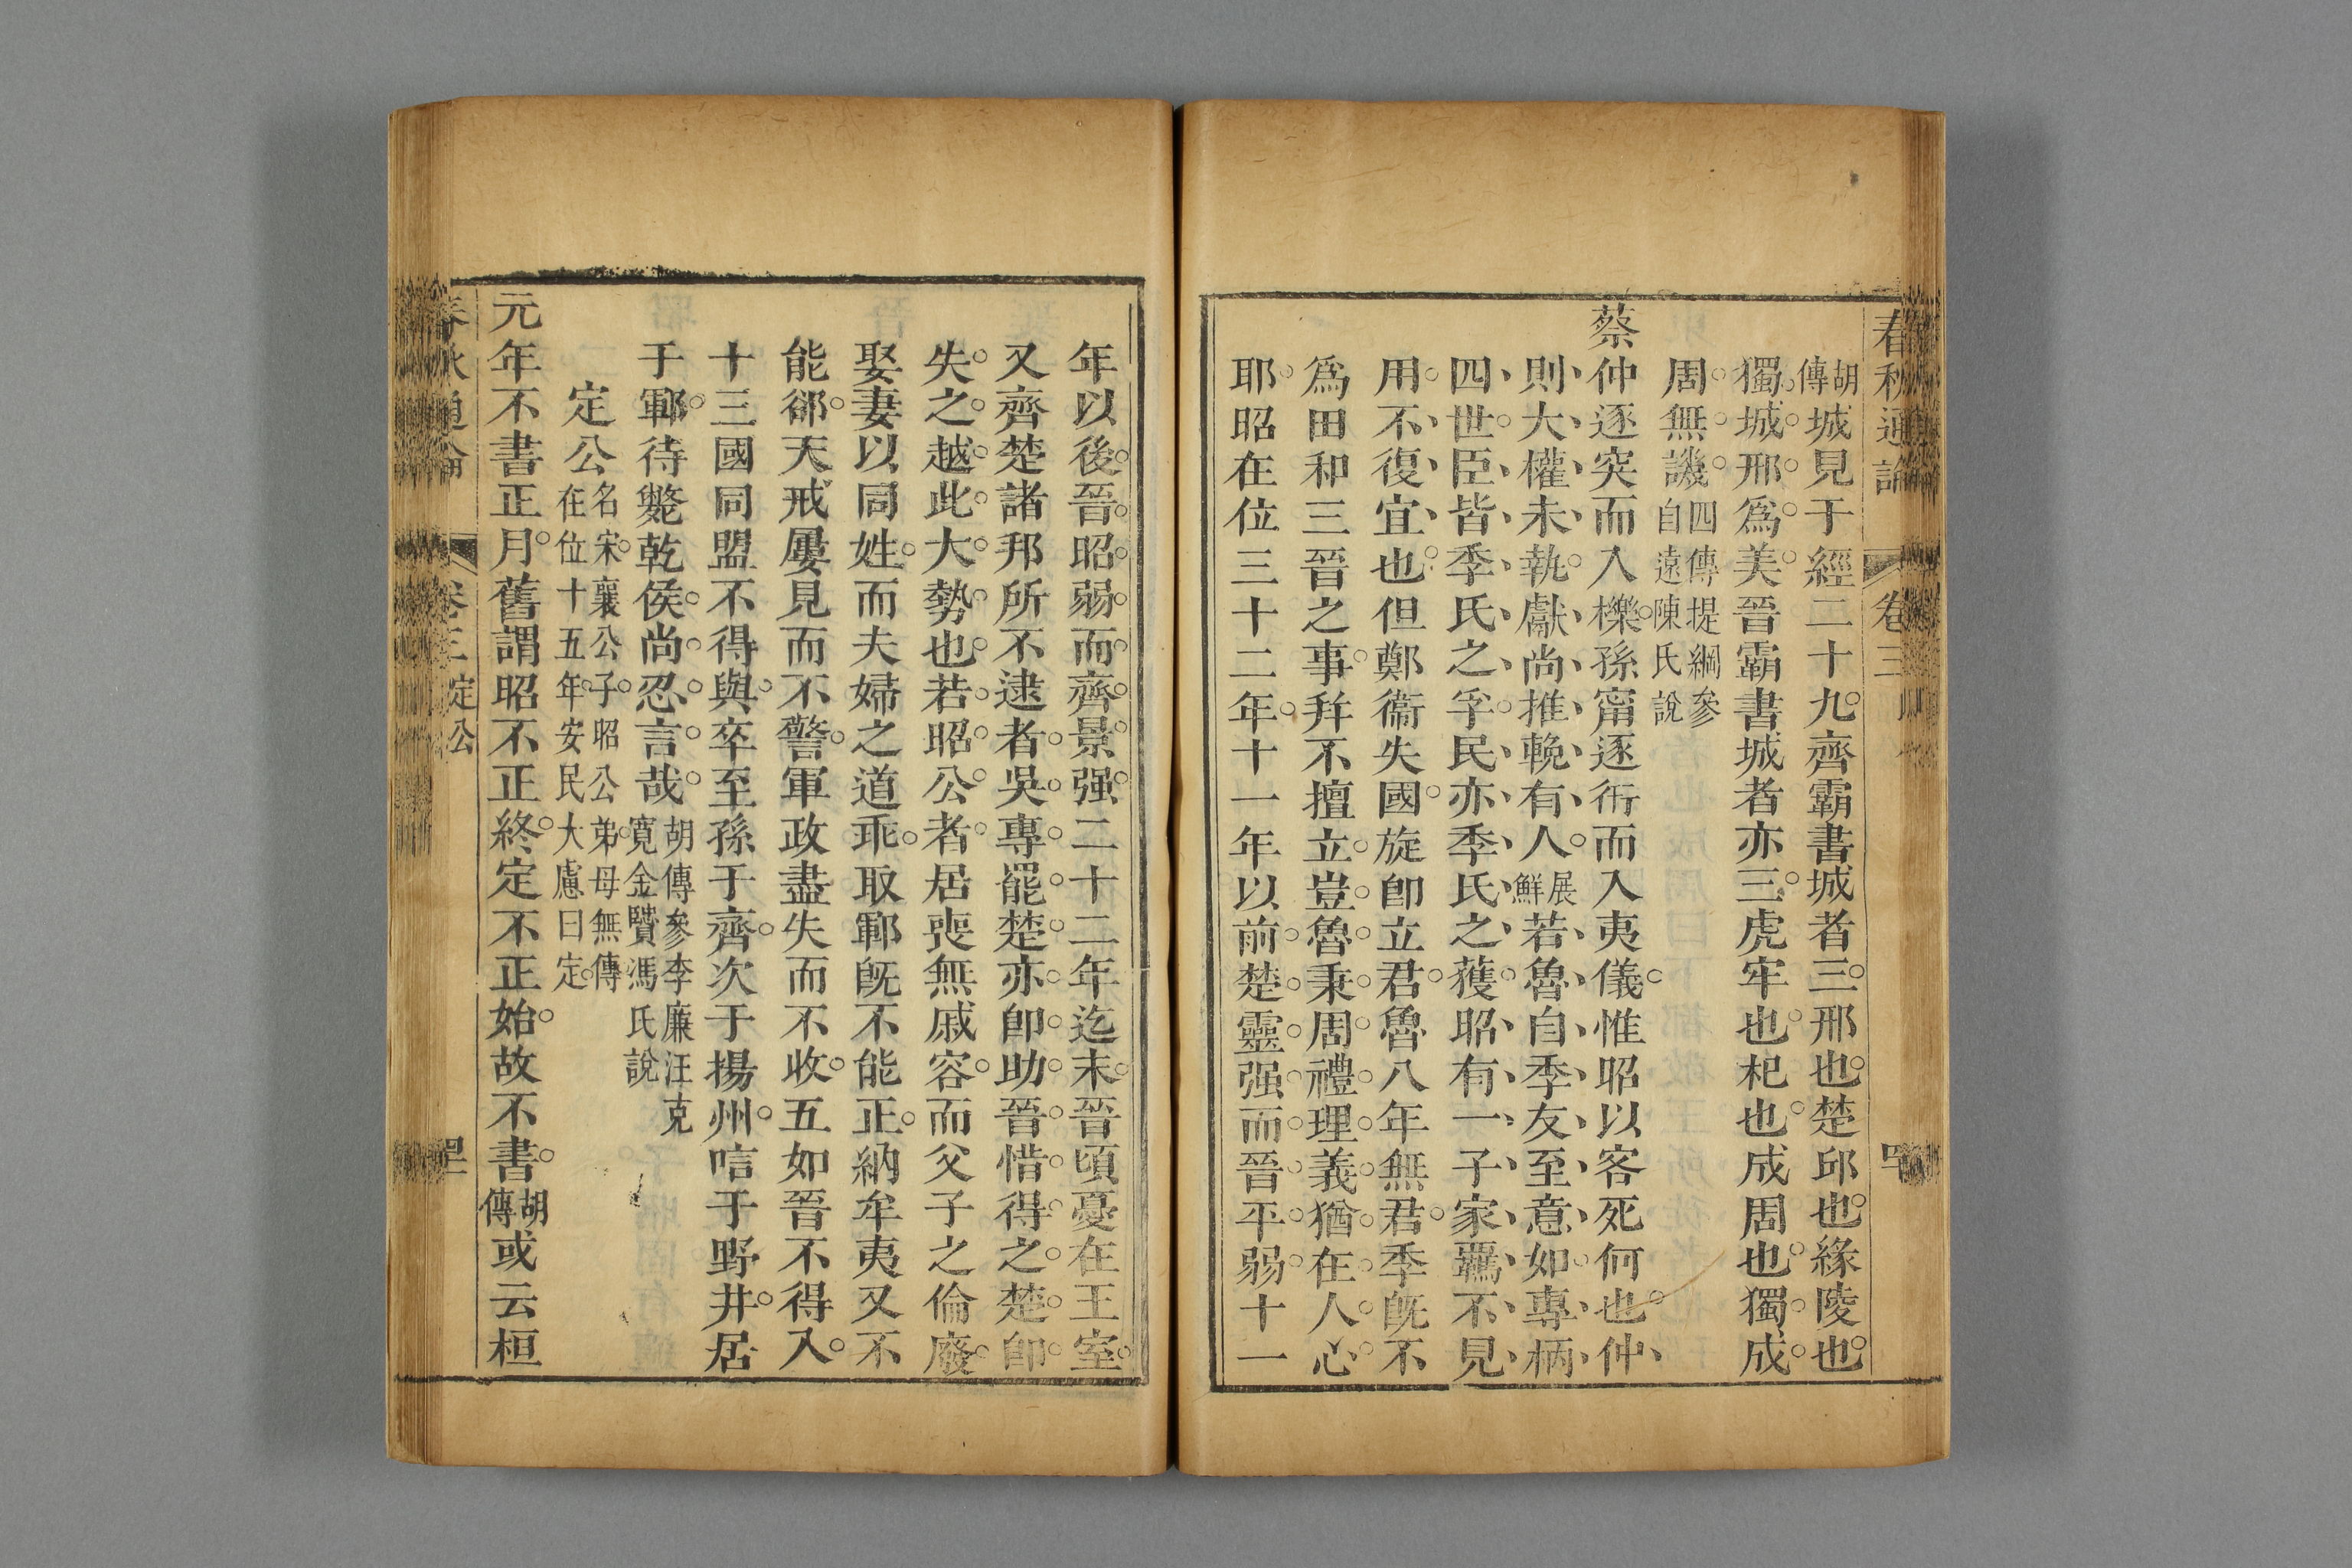 春秋通論 卷三
胡傳城見于經二十九齊霸書城者三邢也楚邱也緣陵也
獨城邢爲美晉霸書城者亦三虎牢也杞也成周也獨成
周無譏四傳提綱參自遠陳氏說
蔡仲逐突而入櫟孫甯逐衎而入夷儀惟昭以客死何也仲
則大權未執獻尚推輓有人展鮮若魯自季友至意如專柄
四世臣皆季氏之孚民亦季氏之獲昭有一子家羈不見
用不復宜也但鄭衞失國旋卽立君魯八年無君季旣不
爲田和三晉之事幷不擅立豈魯秉周禮理義猶在人心
耶昭在位三十二年十一年以前楚靈强而晉平弱十一
年以後晉昭弱而齊景强二十二年迄末晉頃憂在王室
又齊楚諸邦所不逮者吳專罷楚亦卽助晉惜得之楚卽
失之越此大勢也若昭公者居喪無戚容而父子之倫廢
娶妻以同姓而夫婦之道乖取鄆旣不能正納牟夷又不
能郤天戒屢見而不警軍政盡失而不收五如晉不得入
十三國同盟不得與卒至孫于齊次于揚州唁于野井居
于鄆待斃乾侯尚忍言哉胡傳參李廉汪克寬金贒馮氏說
定公名宋襄公子昭公弟母無傳在位十五年安民大慮曰定
元年不書正月舊謂昭不正終定不正始故不書胡傳或云桓
春秋通論 卷三 定公